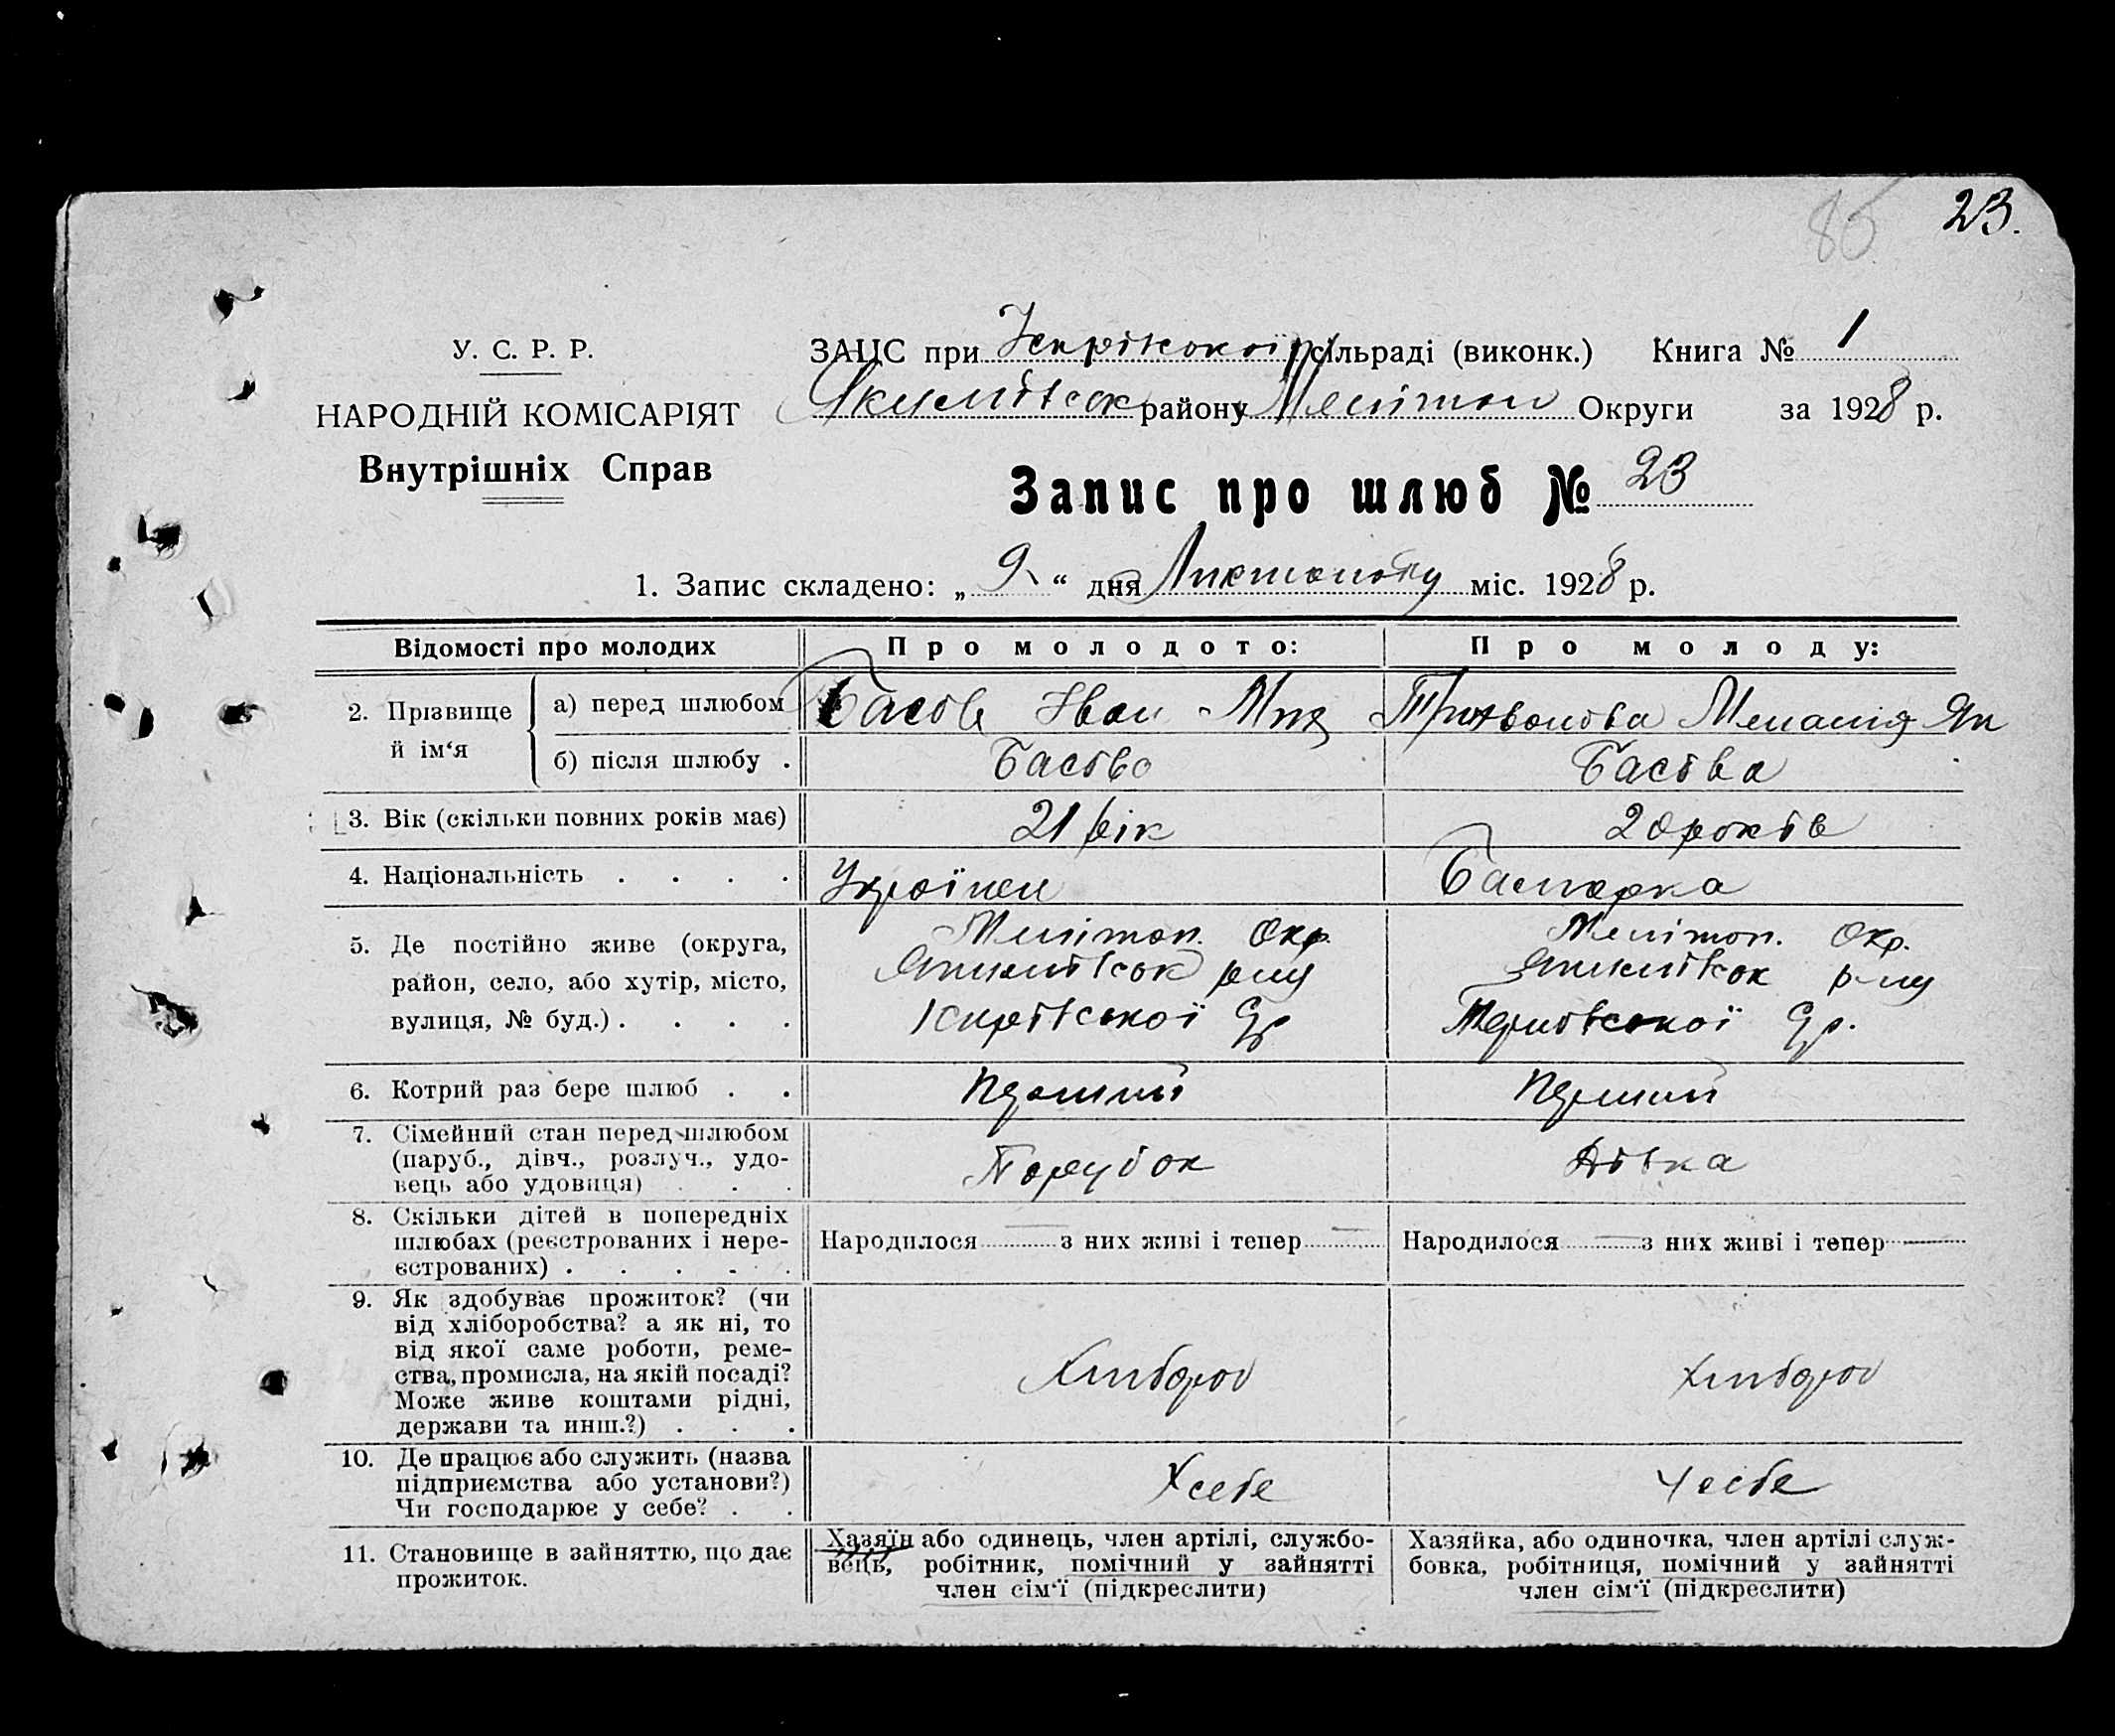 86 23.
У. С. Р. Р.
НАРОДНІЙ КОМІСАРІЯТ
Внутрішніх Справ
ЗАЦС при сільраді (виконк.) Книга № 1
району Мелітоп Округи за 1928 р.
Запис про шлюб № 23
1. Запис складено: „ 9 “ дня Листопаду міс. 1928 р.
Відомості про молодих
Про молодого:
Про молоду:
2. Прізвище й ім‘я
а) перед шлюбом
Басов Іван
Меланія Як
б) після шлюбу .
Басов
Басова
3. Вік (скільки повних років має)
21 рік
20 років
4. Національність . . . .
Українец
Болгарка
5. Де постійно живе (округа,
район, село, або хутір, місто,
вулиця, № буд.) . . . .
Мелітоп. Окр.
р-ну
Мелітоп. Окр.
р-ну
6. Котрий раз бере шлюб . .
Перший
Перший
7. Сімейний стан перед шлюбом
(паруб., дівч., розлуч., удо-
вець або удовиця) . . .
Парубок
Дівка
8. Скільки дітей в попередніх
шлюбах (реєстрованих і нере-
єстрованих) . . . . .
Народилося — з них живі і тепер —
Народилося — з них живі і тепер —
9. Як здобуває прожиток? (чи
від хліборобства? а як ні, то
від якої саме роботи, реме-
ства, промисла, на якій посаді?
Може живе коштами рідні,
держави та инш.?) . . .
Хлибороб
Хлибороб
10. Де працює або служить (назва
підприємства або установи?)
Чи господарює у себе? . .
У себе
У себе
11. Становище в зайняттю, що дає
прожиток.
Хазяїн або одинець, член артілі, службо-
вець, робітник, помічний у зайнятті
член сім‘ї (підкреслити)
Хазяйка, або одиночка, член артілі служ-
бовка, робітниця, помічний у зайнятті
член сім‘ї (підкреслити)